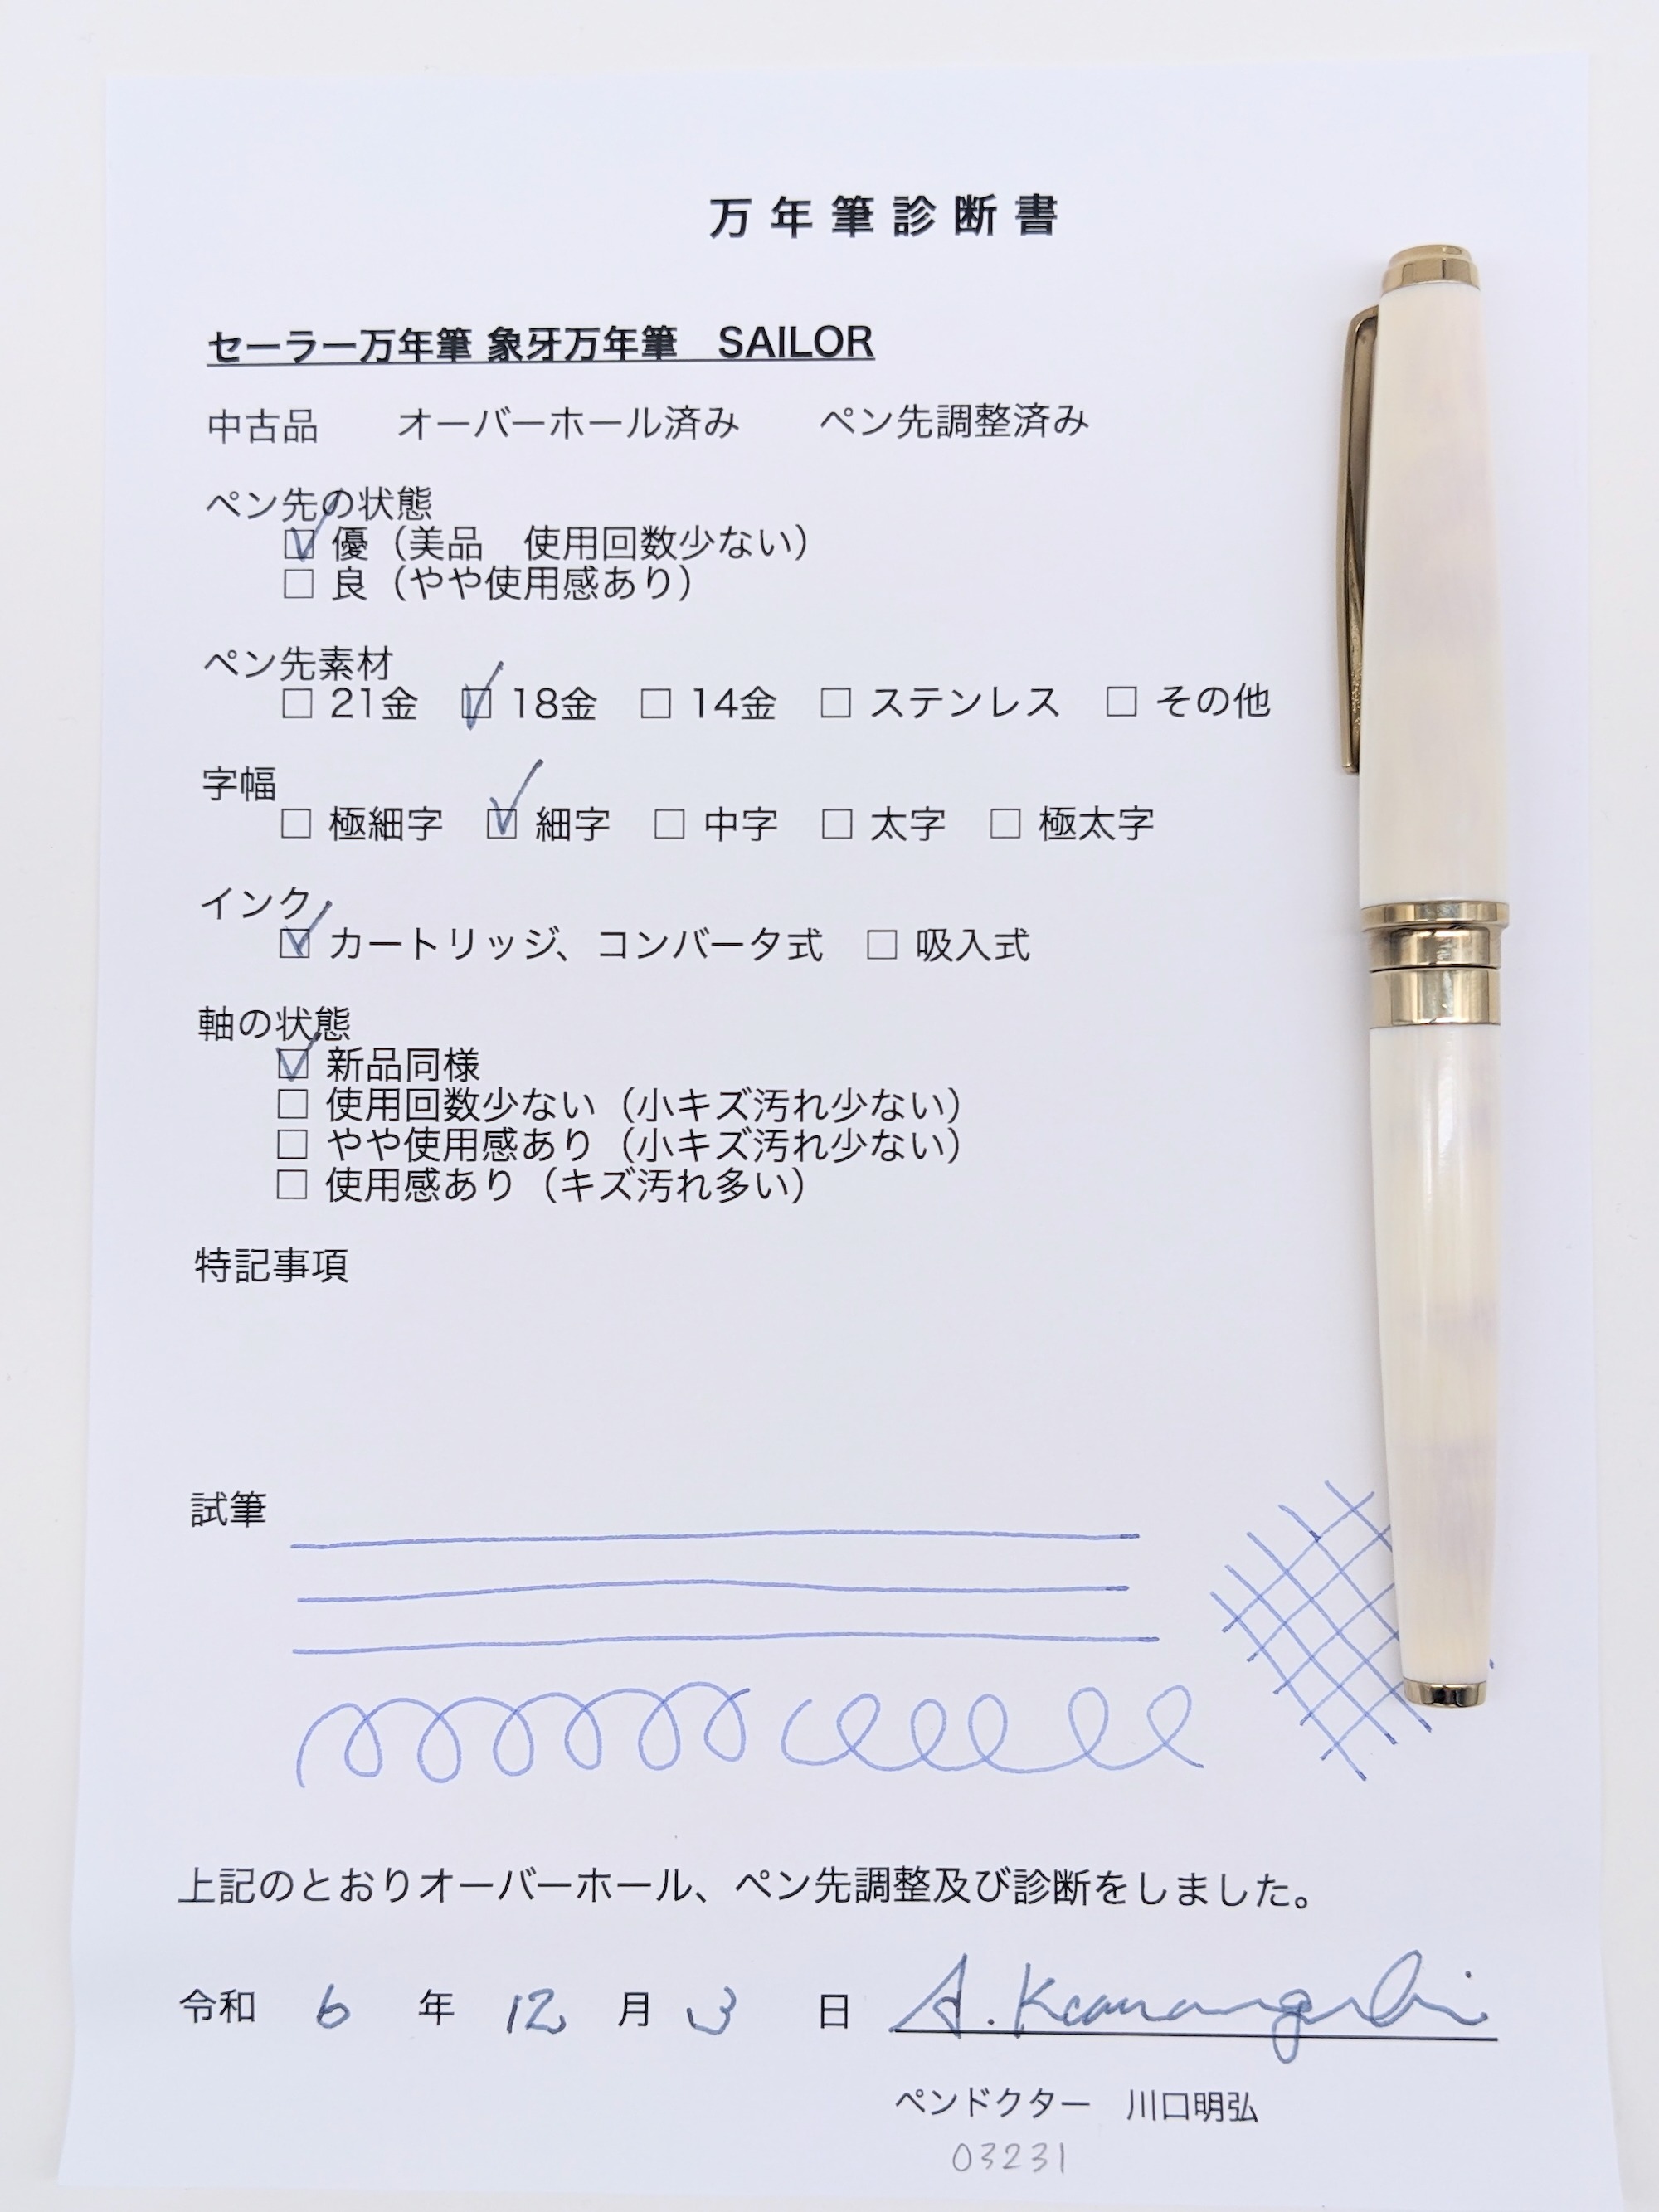 万年筆診断書
セーラー万年筆 象牙万年筆　SAILOR
中古品　　オーバーホール済み　　ペン先調整済み
ペン先の状態
☑ 優（美品　使用回数少ない）
□ 良（やや使用感あり）
ペン先素材
□ 21金　☑ 18金　□ 14金　□ ステンレス　□ その他
字幅
□ 極細字　☑ 細字　□ 中字　□ 太字　□ 極太字
インク
☑ カートリッジ、コンバータ式　□ 吸入式
軸の状態
☑ 新品同様
□ 使用回数少ない（小キズ汚れ少ない）
□ やや使用感あり（小キズ汚れ少ない）
□ 使用感あり（キズ汚れ多い）
特記事項
試筆
上記のとおりオーバーホール、ペン先調整及び診断をしました。
令和 6 年 12 月 3 日 A. Kawaguchi
ペンドクター　川口明弘
03231